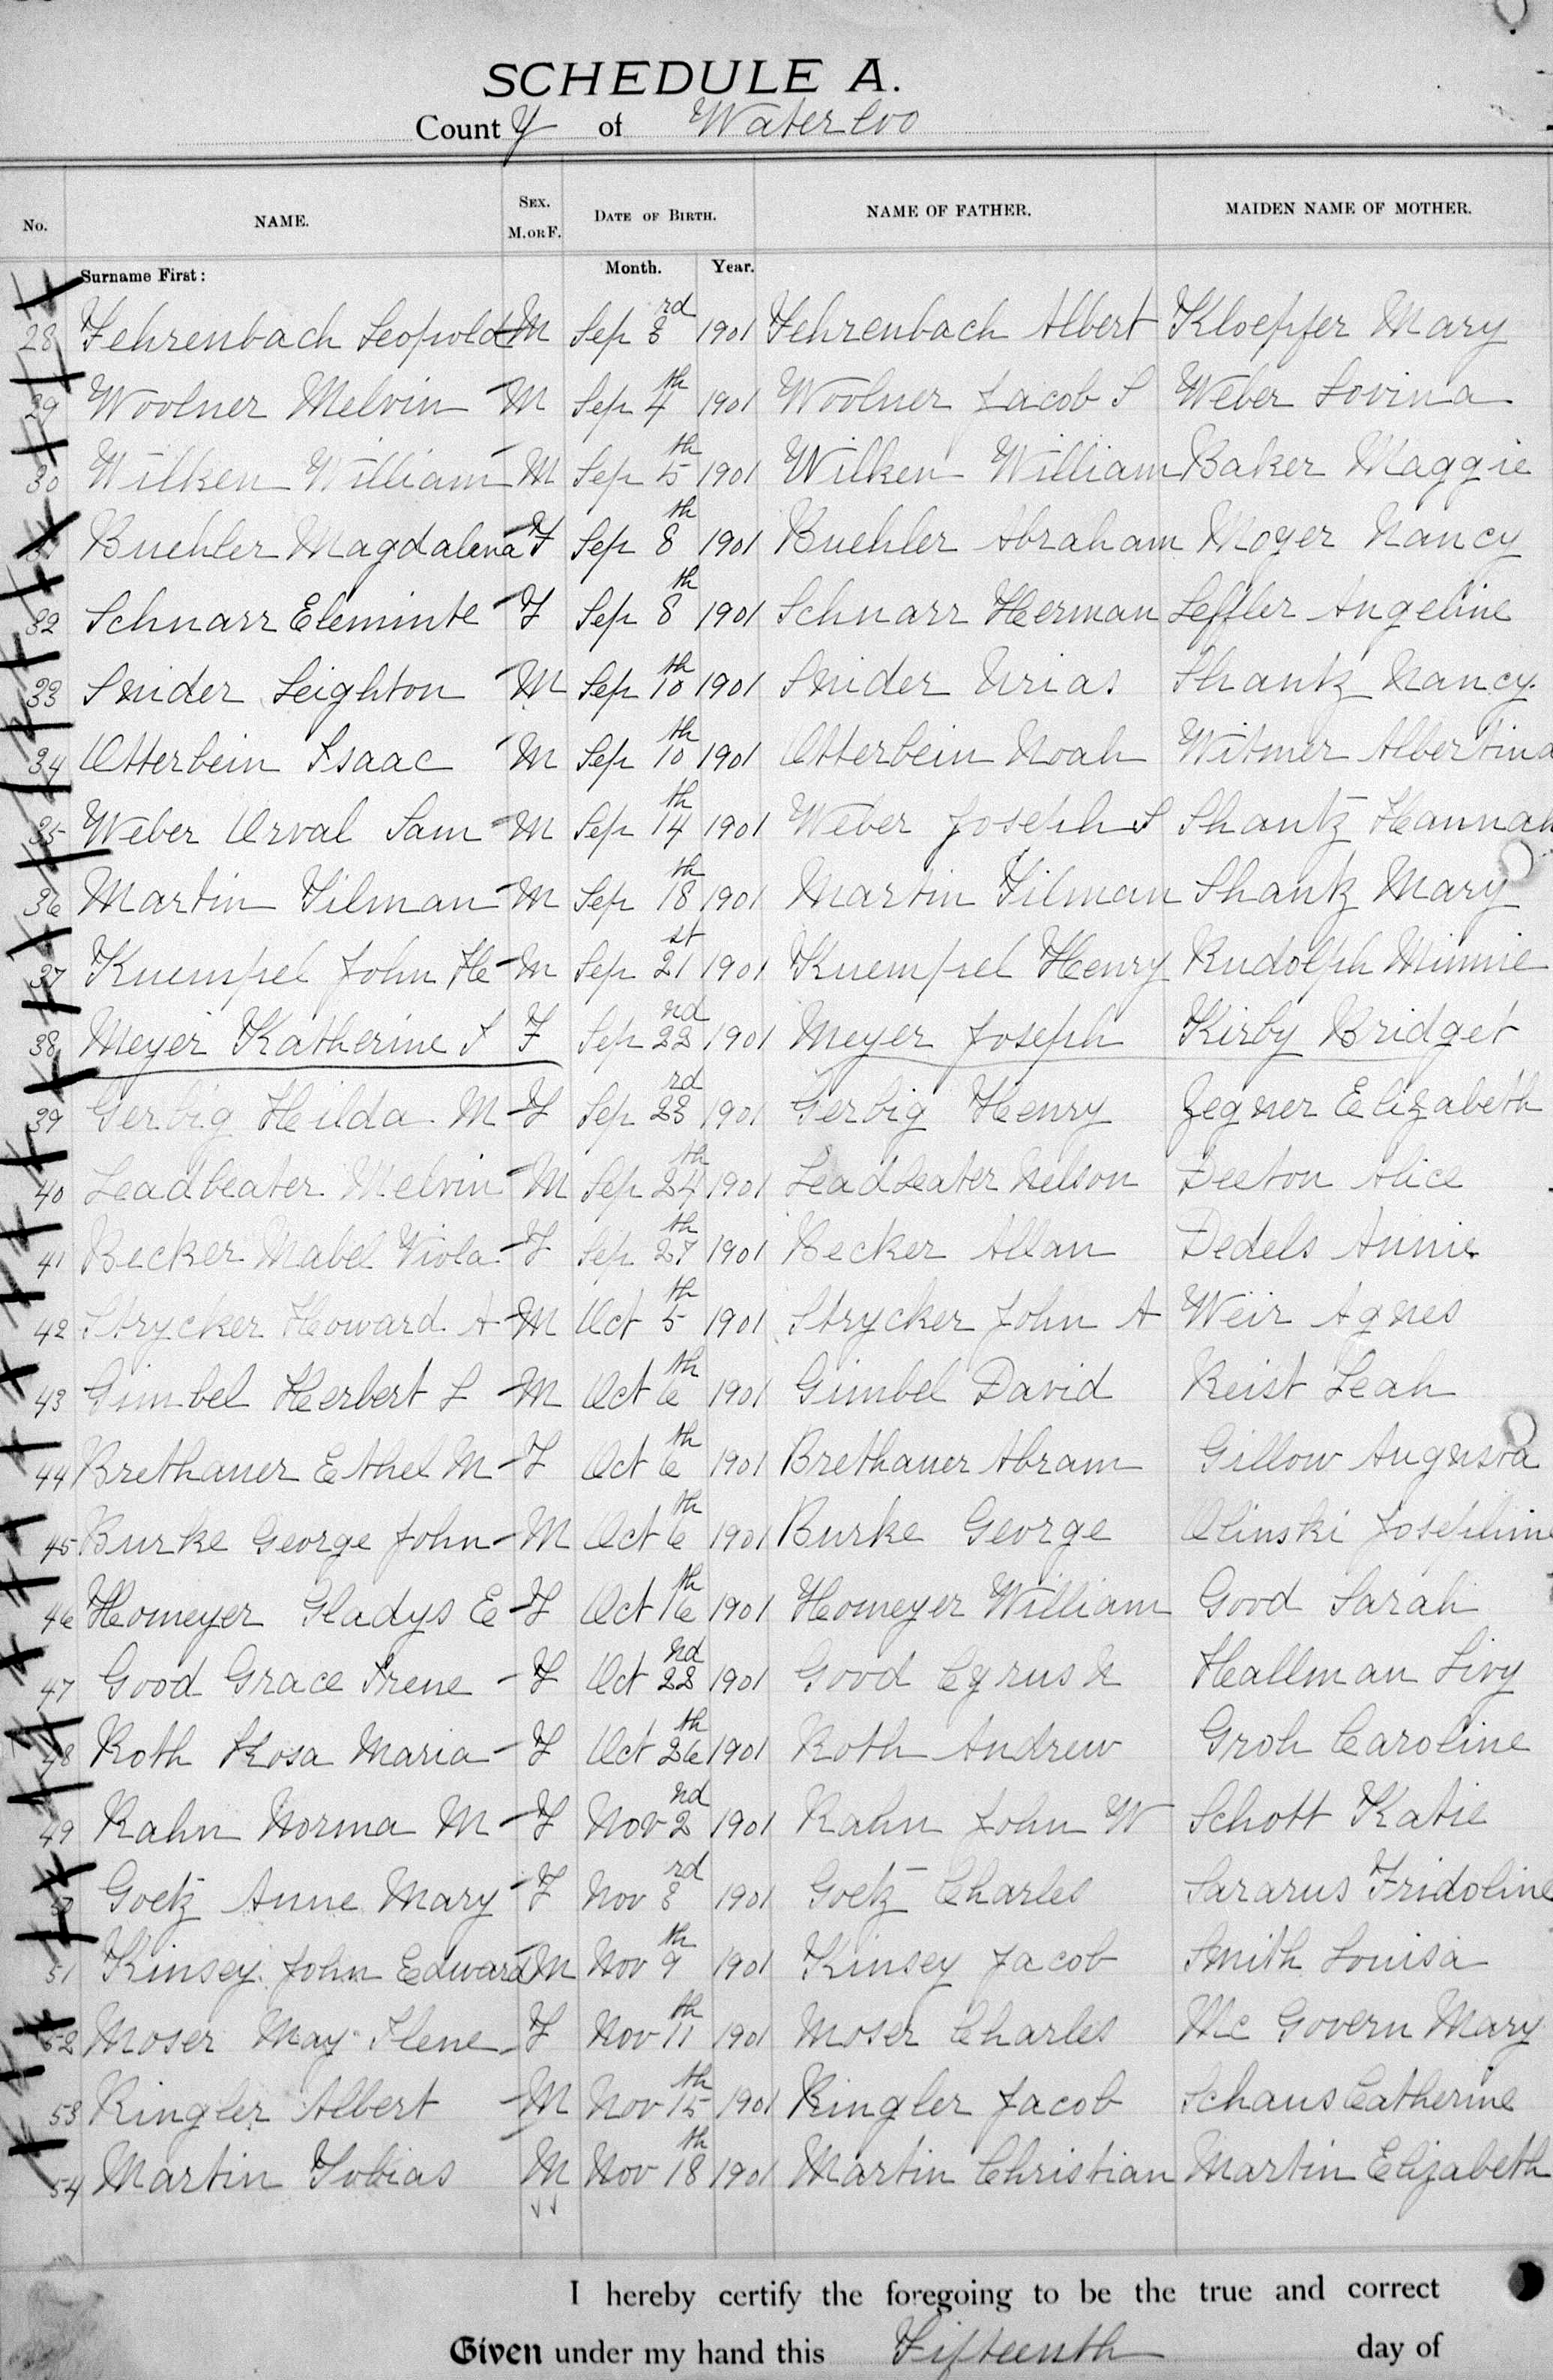 SCHEDULE A.
County of Waterloo
No. NAME. SEX. M. OR F. DATE OF BIRTH. NAME OF FATHER. MAIDEN NAME OF MOTHER.
Surname First: Month. Year.
28 Fehrenbach Leopold M Sep 3rd 1901 Fehrenbach Albert Kloepfer Mary
29 Woolner Melvin M Sep 4th 1901 Woolner Jacob S Weber Lovina
30 Wilken William M Sep 5th 1901 Wilken William Baker Maggie
Buehler Magdalena F Sep 8th 1901 Buehler Abraham Moyer Nancy
32 Schnarr Eleminte F Sep 8th 1901 Schnarr Herman Leffler Angeline
33 Snider Leighton M Sep 10th 1901 Snider Urias Shantz Nancy.
34 Otterbein Isaac M Sep 10th 1901 Otterbein Noah Witmer Albertina
35 Weber Orval Sam M Sep 14th 1901 Weber Joseph S Shantz Hannah
36 Martin Tilman M Sep 18th 1901 Martin Tilman Shantz Mary
37 Kuempel John He M Sep 21st 1901 Kuempel Henry Rudolph Minnie
38 Meyer Katherine S F Sep 22nd 1901 Meyer Joseph Kirby Bridget
39 Gerbig Hilda M F Sep 23rd 1901 Gerbig Henry Zegner Elizabeth
40 Leadbeater Melvin M Sep 24th 1901 Leadbeater Nelson Deeton Alice
41 Becker Mabel Viola F Sep 27th 1901 Becker Allan Dedels Annie
42 Strycker Howard A M Oct 5th 1901 Strycker John A Weir Agnes
43 Gimbel Herbert L M Oct 6th 1901 Gimbel David Reist Leah
44 Brethauer Ethel M F Oct 6th 1901 Brethauer Abram Gillow Augusta
45 Burke George John M Oct 6th 1901 Burke George Olinski Josephine
46 Homeyer Gladys E F Oct 16th 1901 Homeyer William Good Sarah
47 Good Grace Irene F Oct 22nd 1901 Good Cyrus N Hallman Livy
48 Roth Rosa Maria F Oct 26th 1901 Roth Andrew Groh Caroline
49 Rahn Norma M F Nov 2nd 1901 Rahn John W Schott Katie
50 Goetz Anne Mary F Nov 3rd 1901 Goetz Charles Sararus Fridoline
51 Kinsey John Edward M Nov 9th 1901 Kinsey Jacob Smith Louisa
52 Moser May Ilene F Nov 11th 1901 Moser Charles Mc Govern Mary
53 Ringler Albert M Nov 15th 1901 Ringler Jacob Schaus Catherine
54 Martin Tobias M Nov 18th 1901 Martin Christian Martin Elizabeth
I hereby certify the foregoing to be the true and correct
Given under my hand this Fifteenth day of